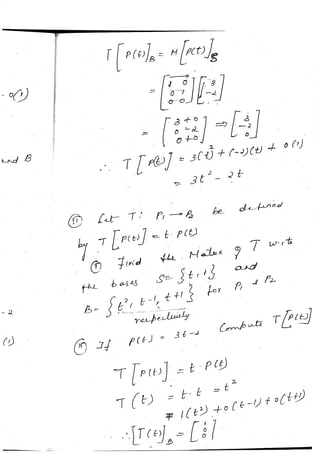 T [P(t)]_B = M [P(t)]_S
= [1 0; 0 1; 0 0] [3; -2]
0(1)
= [3+0; 0-2; 0+0] ⇒ [3; -2; 0]
and B
∴ T [P(t)] = 3(t²) + (-2)(t) + 0(1)
= 3t² - 2t
Let T: P₁ → P₂ be defined
by T [P(t)] = t · P(t)
① Find the Matrix of T w.r.to
the bases S = {t, 1} and
B = {t², t-1, t+1} for P₁ & P₂
respectively
-2
(1)
② If P(t) = 3t-2 Compute T[P(t)]
T [P(t)] = t · P(t)
T(t) = t · t = t²
= 1(t²) + 0(t-1) + 0(t+1)
∴ [T(t)]_B = [1; 0; 0]